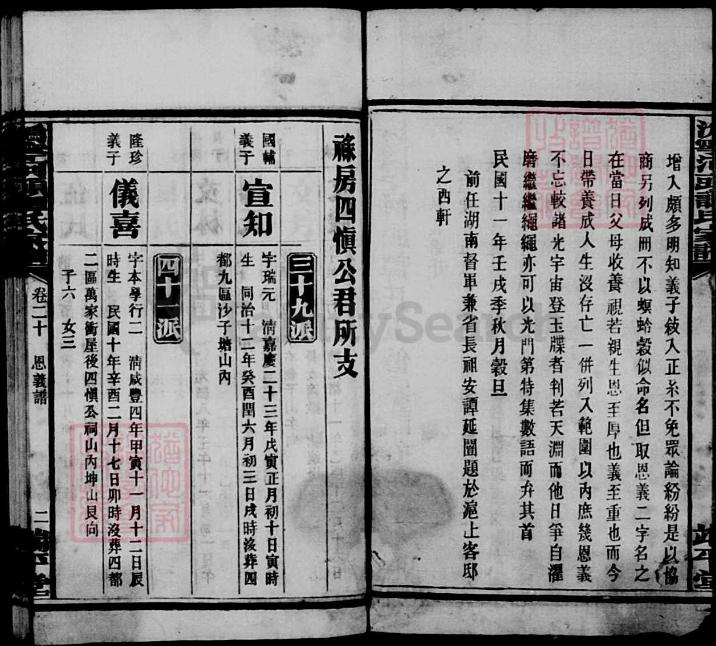 增入頗多明知義子敍入正系不免眾論紛紛是以協
商另列成冊不以螟蛉穀似命名但取恩義二字名之
在當日父母收養視若親生恩至厚也義至重也而今
日帶養成人生沒存亡一併列入範圍以內庶幾恩義
不忘較諸光宇宙登玉牒者判若天淵而他日爭自濯
磨繼繼繩繩亦可以光門第特集數語而弁其首
民國十一年壬戌季秋月穀旦
前任湖南督軍兼省長祖安譚延闓題於滬上客邸
之西軒
孫房四愼公君所支
三十九派
國輔
義子
宣知
字瑞元 淸嘉慶二十三年戊寅正月初十日寅時
生 同治十二年癸酉閏六月初三日戌時沒葬四
都九區沙子塘山內
四十一派
隆珍
義子
儀喜
字本學行二 淸咸豐四年甲寅十一月十二日辰
時生 民國十年辛酉二月十七日卯時沒葬四都
二區萬家衝屋後四愼公祠山內坤山艮向
子六 女三
卷二十 恩義譜
二